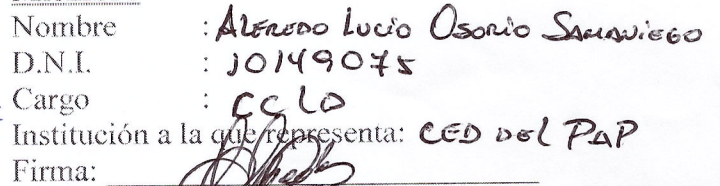 Nombre : Alfredo Lucio Osorio Samaniego
D.N.I. : 10149075
Cargo : CCLD
Institución a la que representa: CED DEL PAP
Firma: